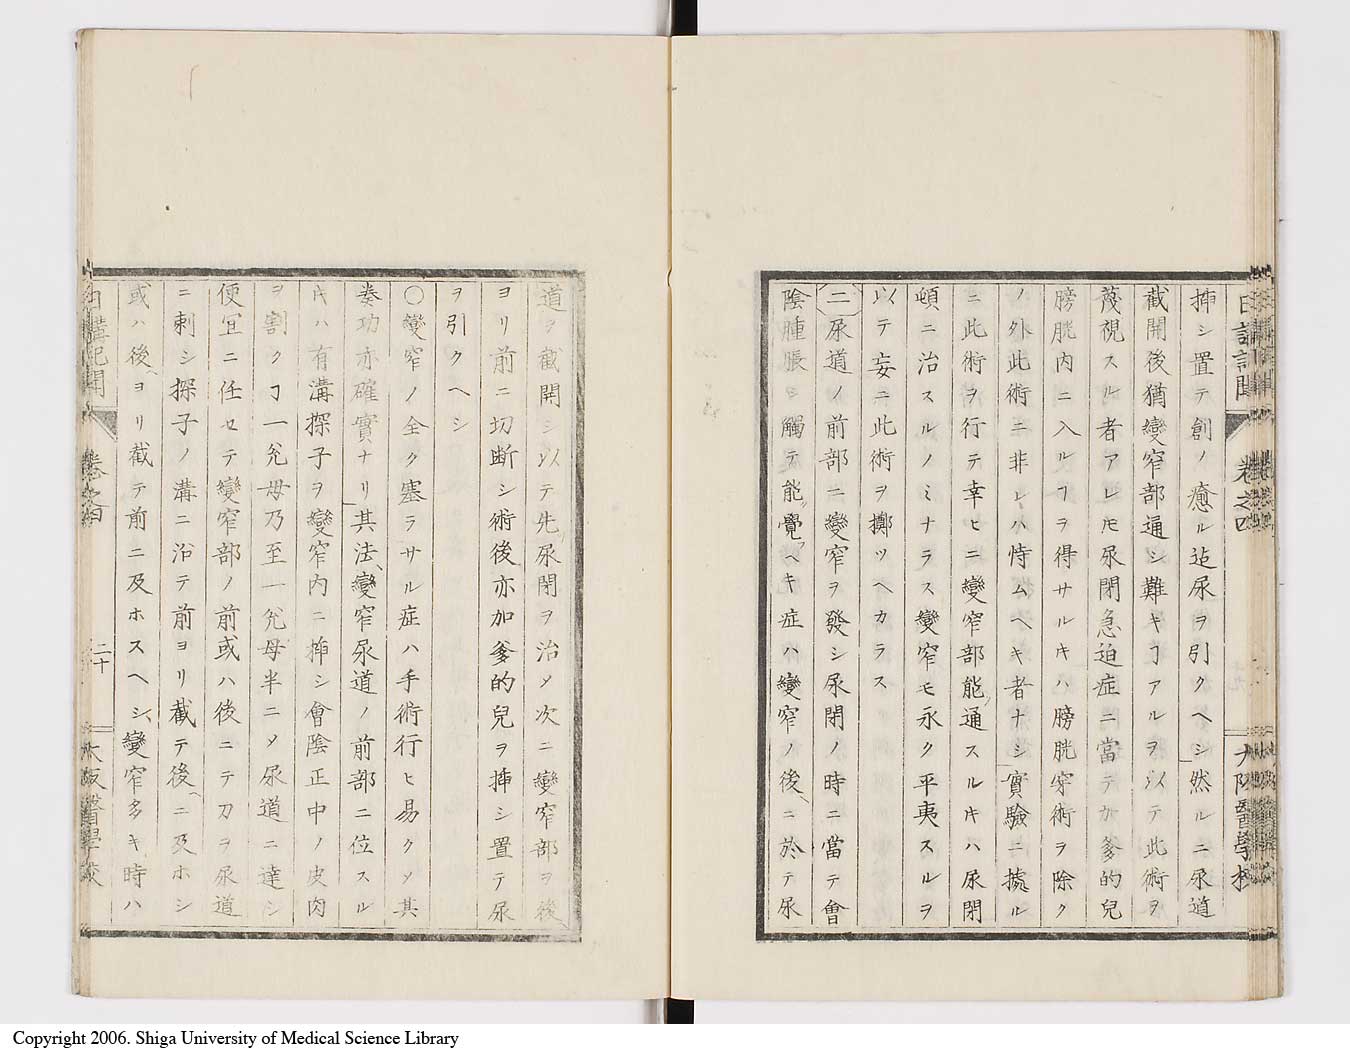 日講記聞 卷之四 大阪醫學校
挿シ置テ創ノ癒ル迠尿ヲ引クヘシ然ルニ尿道
截開後猶變窄部通シ難キヿアルヲ以テ此術ヲ
蔑視スル者アレ𪜈尿閉急迫症ニ當テカ爹的兒
膀胱内ニ入ルヿヲ得サルキハ膀胱穿術ヲ除ク
ノ外此術ニ非レハ恃ムヘキ者ナシ實驗ニ據ル
ニ此術ヲ行テ幸ヒニ變窄部能通スルキハ尿閉
頓ニ治スルノミナラス變窄モ永ク平夷スルヲ
以テ妄ニ此術ヲ擲ツヘカラス
二尿道ノ前部ニ變窄ヲ發シ尿閉ノ時ニ當テ會
陰腫脹シ觸テ能覺ヘキ症ハ變窄ノ後ニ於テ尿
道ヲ截開シ以テ先尿閉ヲ治メ次ニ變窄部ヲ後
ヨリ前ニ切断シ術後亦加爹的兒ヲ挿シ置テ尿
ヲ引クヘシ
〇變窄ノ全ク塞ラサル症ハ手術行ヒ易クメ其
奏功亦確實ナリ其法變窄尿道ノ前部ニ位スル
キハ有溝探子ヲ變窄内ニ挿シ會陰正中ノ皮肉
ヲ割クヿ一兊母乃至一兊母半ニメ尿道ニ達シ
便宜ニ任セテ變窄部ノ前或ハ後ニテ刀ヲ尿道
ニ刺シ探子ノ溝ニ沿テ前ヨリ截テ後ニ及ホシ
或ハ後ヨリ截テ前ニ及ホスヘシ變窄多キ時ハ
日講記聞 卷之四 二十 大阪醫學校
Copyright 2006. Shiga University of Medical Science Library